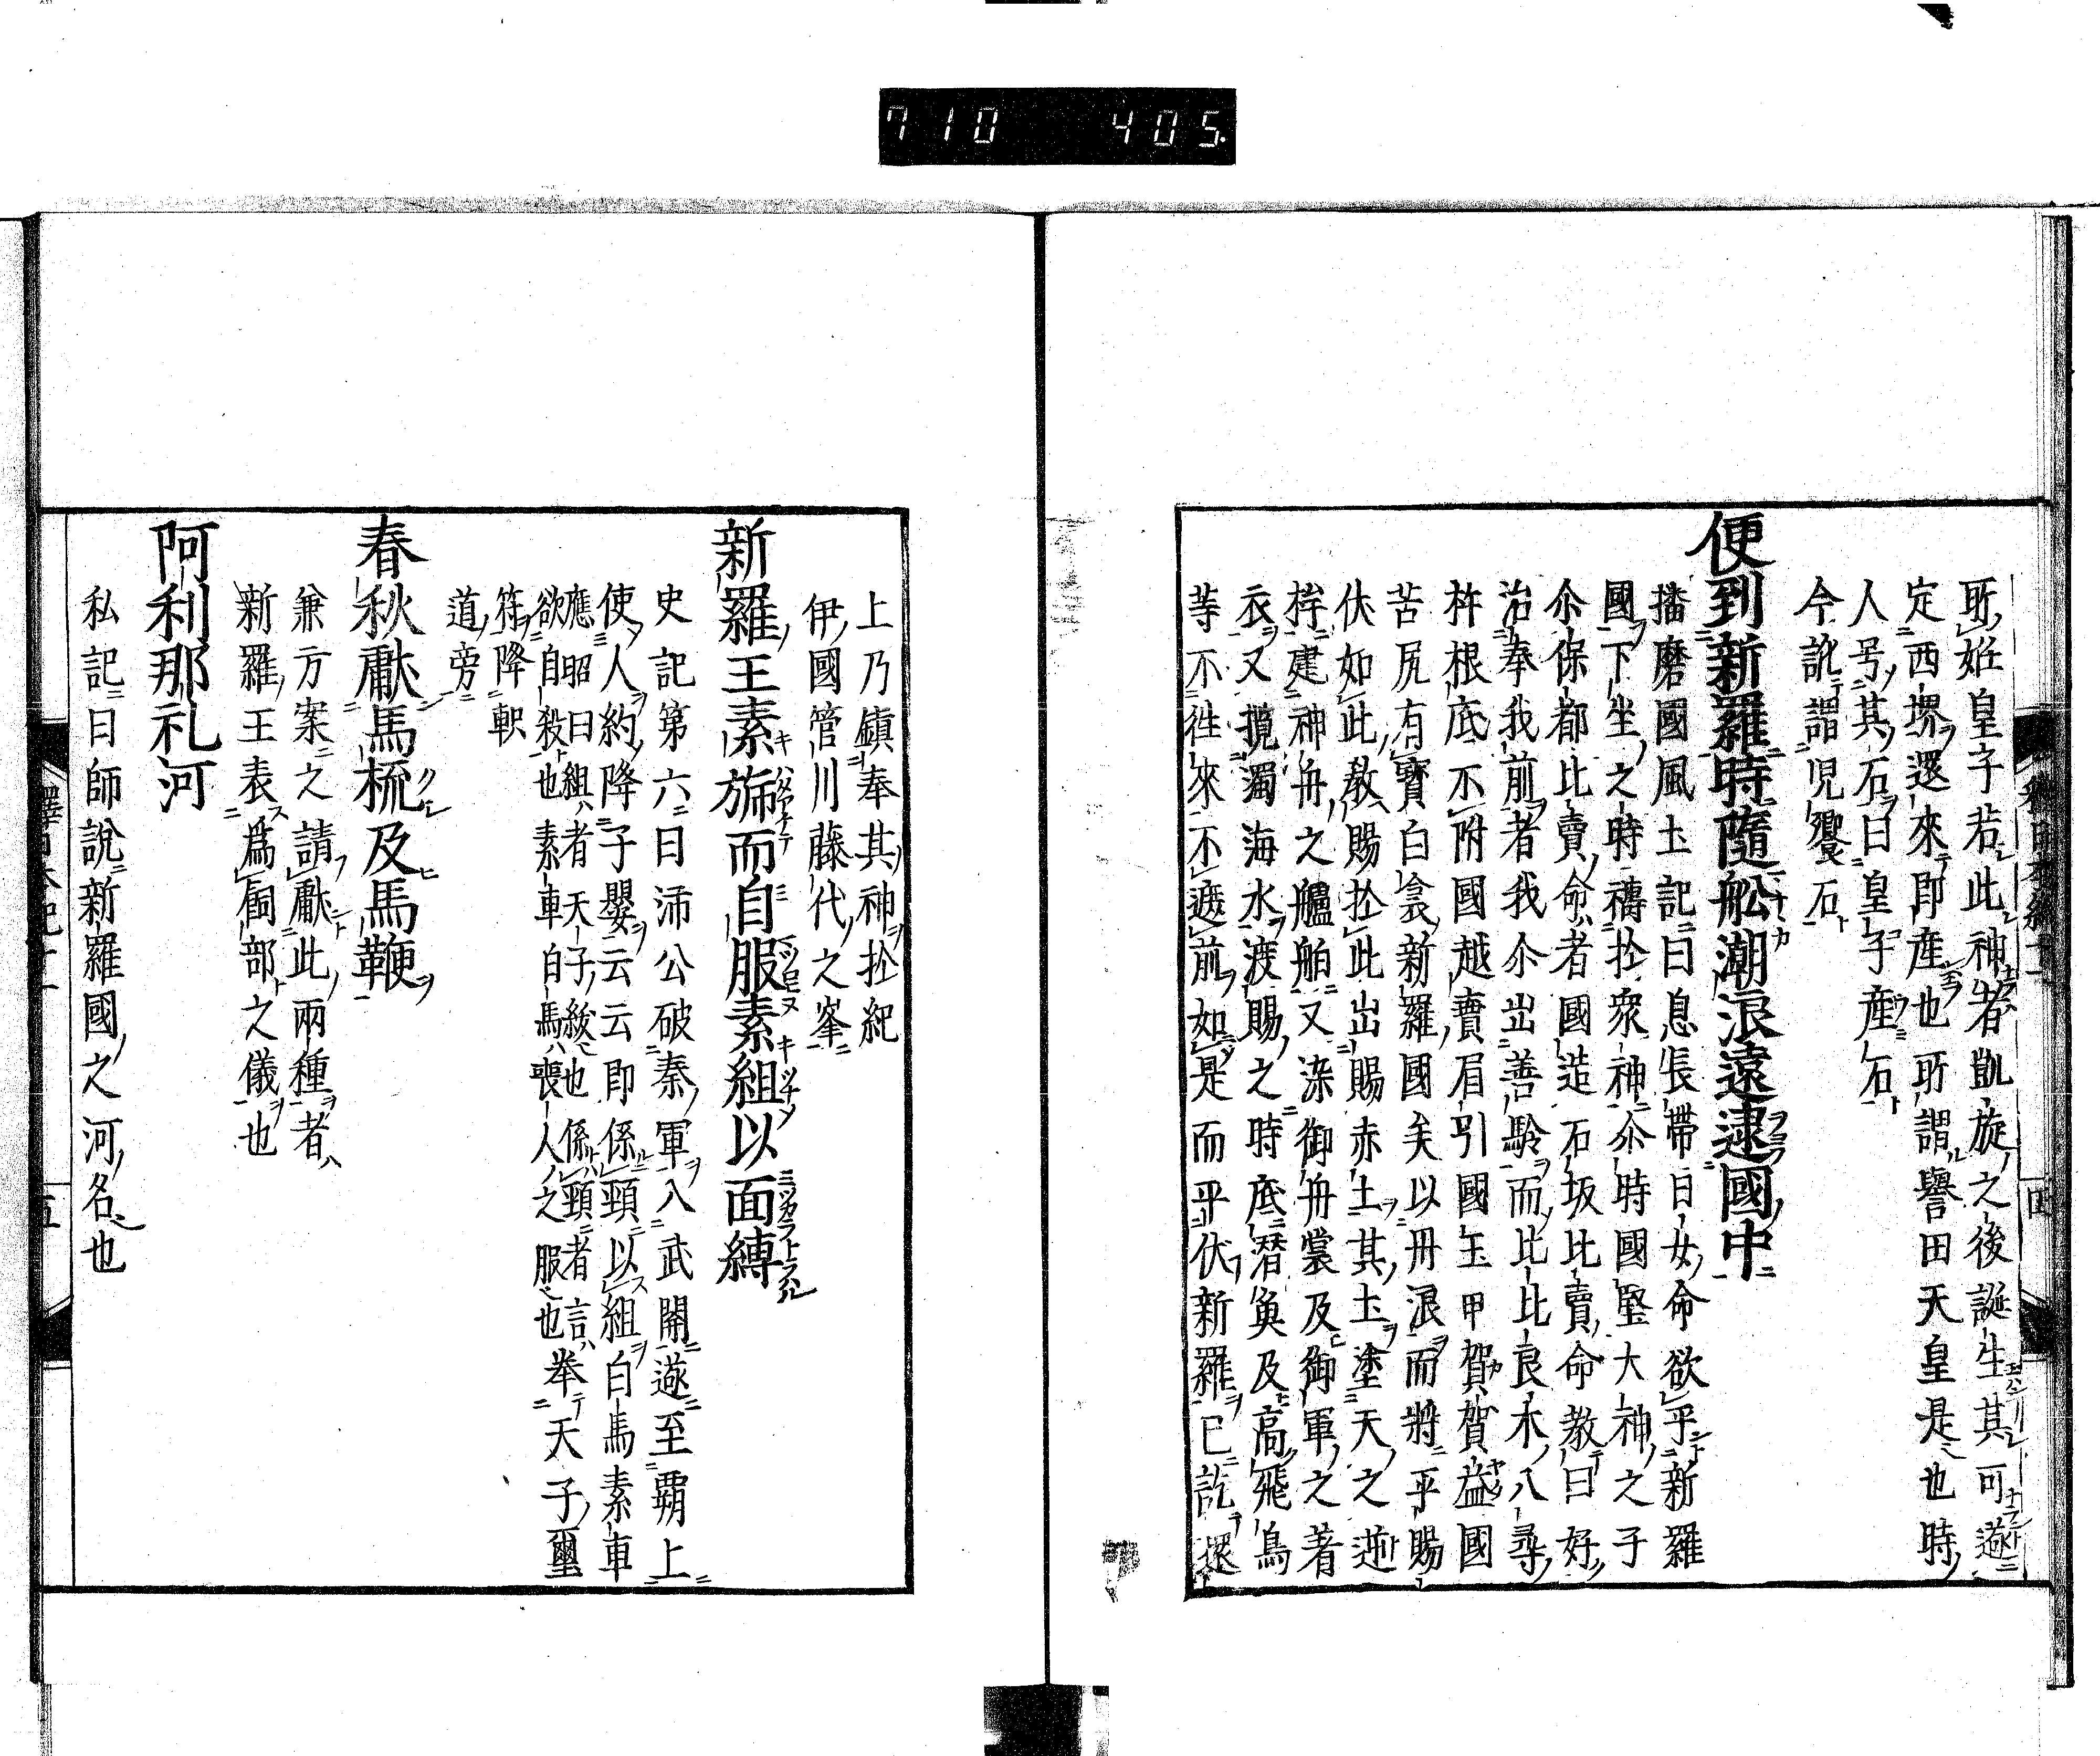 710 405
所姙皇子若此神者凱旋之後誕生其可遂
定西堺還來即産也所謂譽田天皇是也時
人号其石曰皇子産石
今訛謂児饗石
便到新羅時隨舩潮浪遠逮國中
播磨國風土記曰息長帶日女命欲平新羅
國下坐之時禱於衆神尒時國堅大神之子
尒保都比賣命者國造石坂比賣命教曰好
治奉我前者我尒出善驗而比比良木八尋
桙根底不附國越賣眉引國玉甲賀賀益國
苦尻有寳白衾新羅國矣以丹浪而將平賜
伏如此教賜於此出賜赤土其土塗天之逆
桙建神舟之艫舳又染御舟裳及御軍之著
衣又攪濁海水渡賜之時底潜魚及高飛鳥
等不徃來不遮前如是而平伏新羅已訖還
上乃鎮奉其神於紀
伊國管川藤代之峯
新羅王素旆而自服素組以面縛
キハタアケテ
キツナヲ
史記第六曰沛公破秦軍入武關遂至覇上
使人約降子嬰云云即係頸以組白馬素車
應昭曰組者天子紱也係頸者言
欲自殺也素車白馬喪人之服也
奉天子璽
符降軹
道旁
春秋獻馬梳及馬鞭
兼方案之請獻此兩種者
新羅王表爲飼部之儀也
阿利那礼河
私記曰師説新羅國之河名也
釋日本紀十一
五